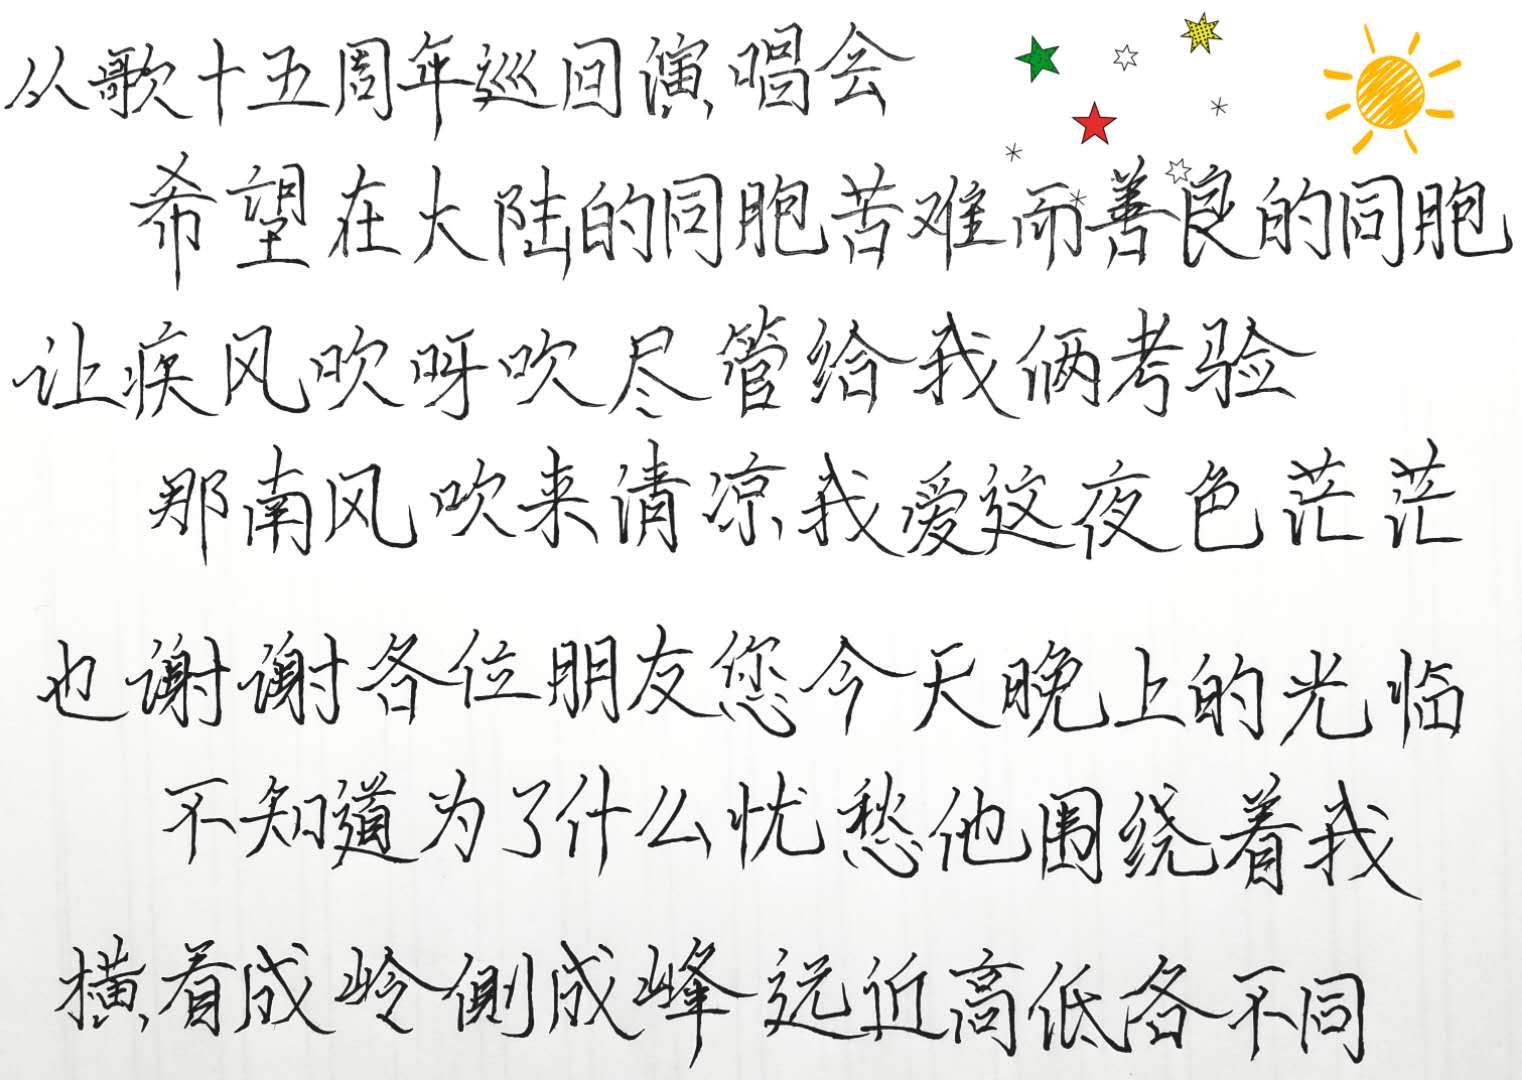 从歌十五周年巡回演唱会
希望在大陆的同胞苦难而善良的同胞
让疾风吹呀吹尽管给我俩考验
那南风吹来清凉我爱这夜色茫茫
也谢谢各位朋友您今天晚上的光临
不知道为了什么忧愁他围绕着我
横看成岭侧成峰远近高低各不同